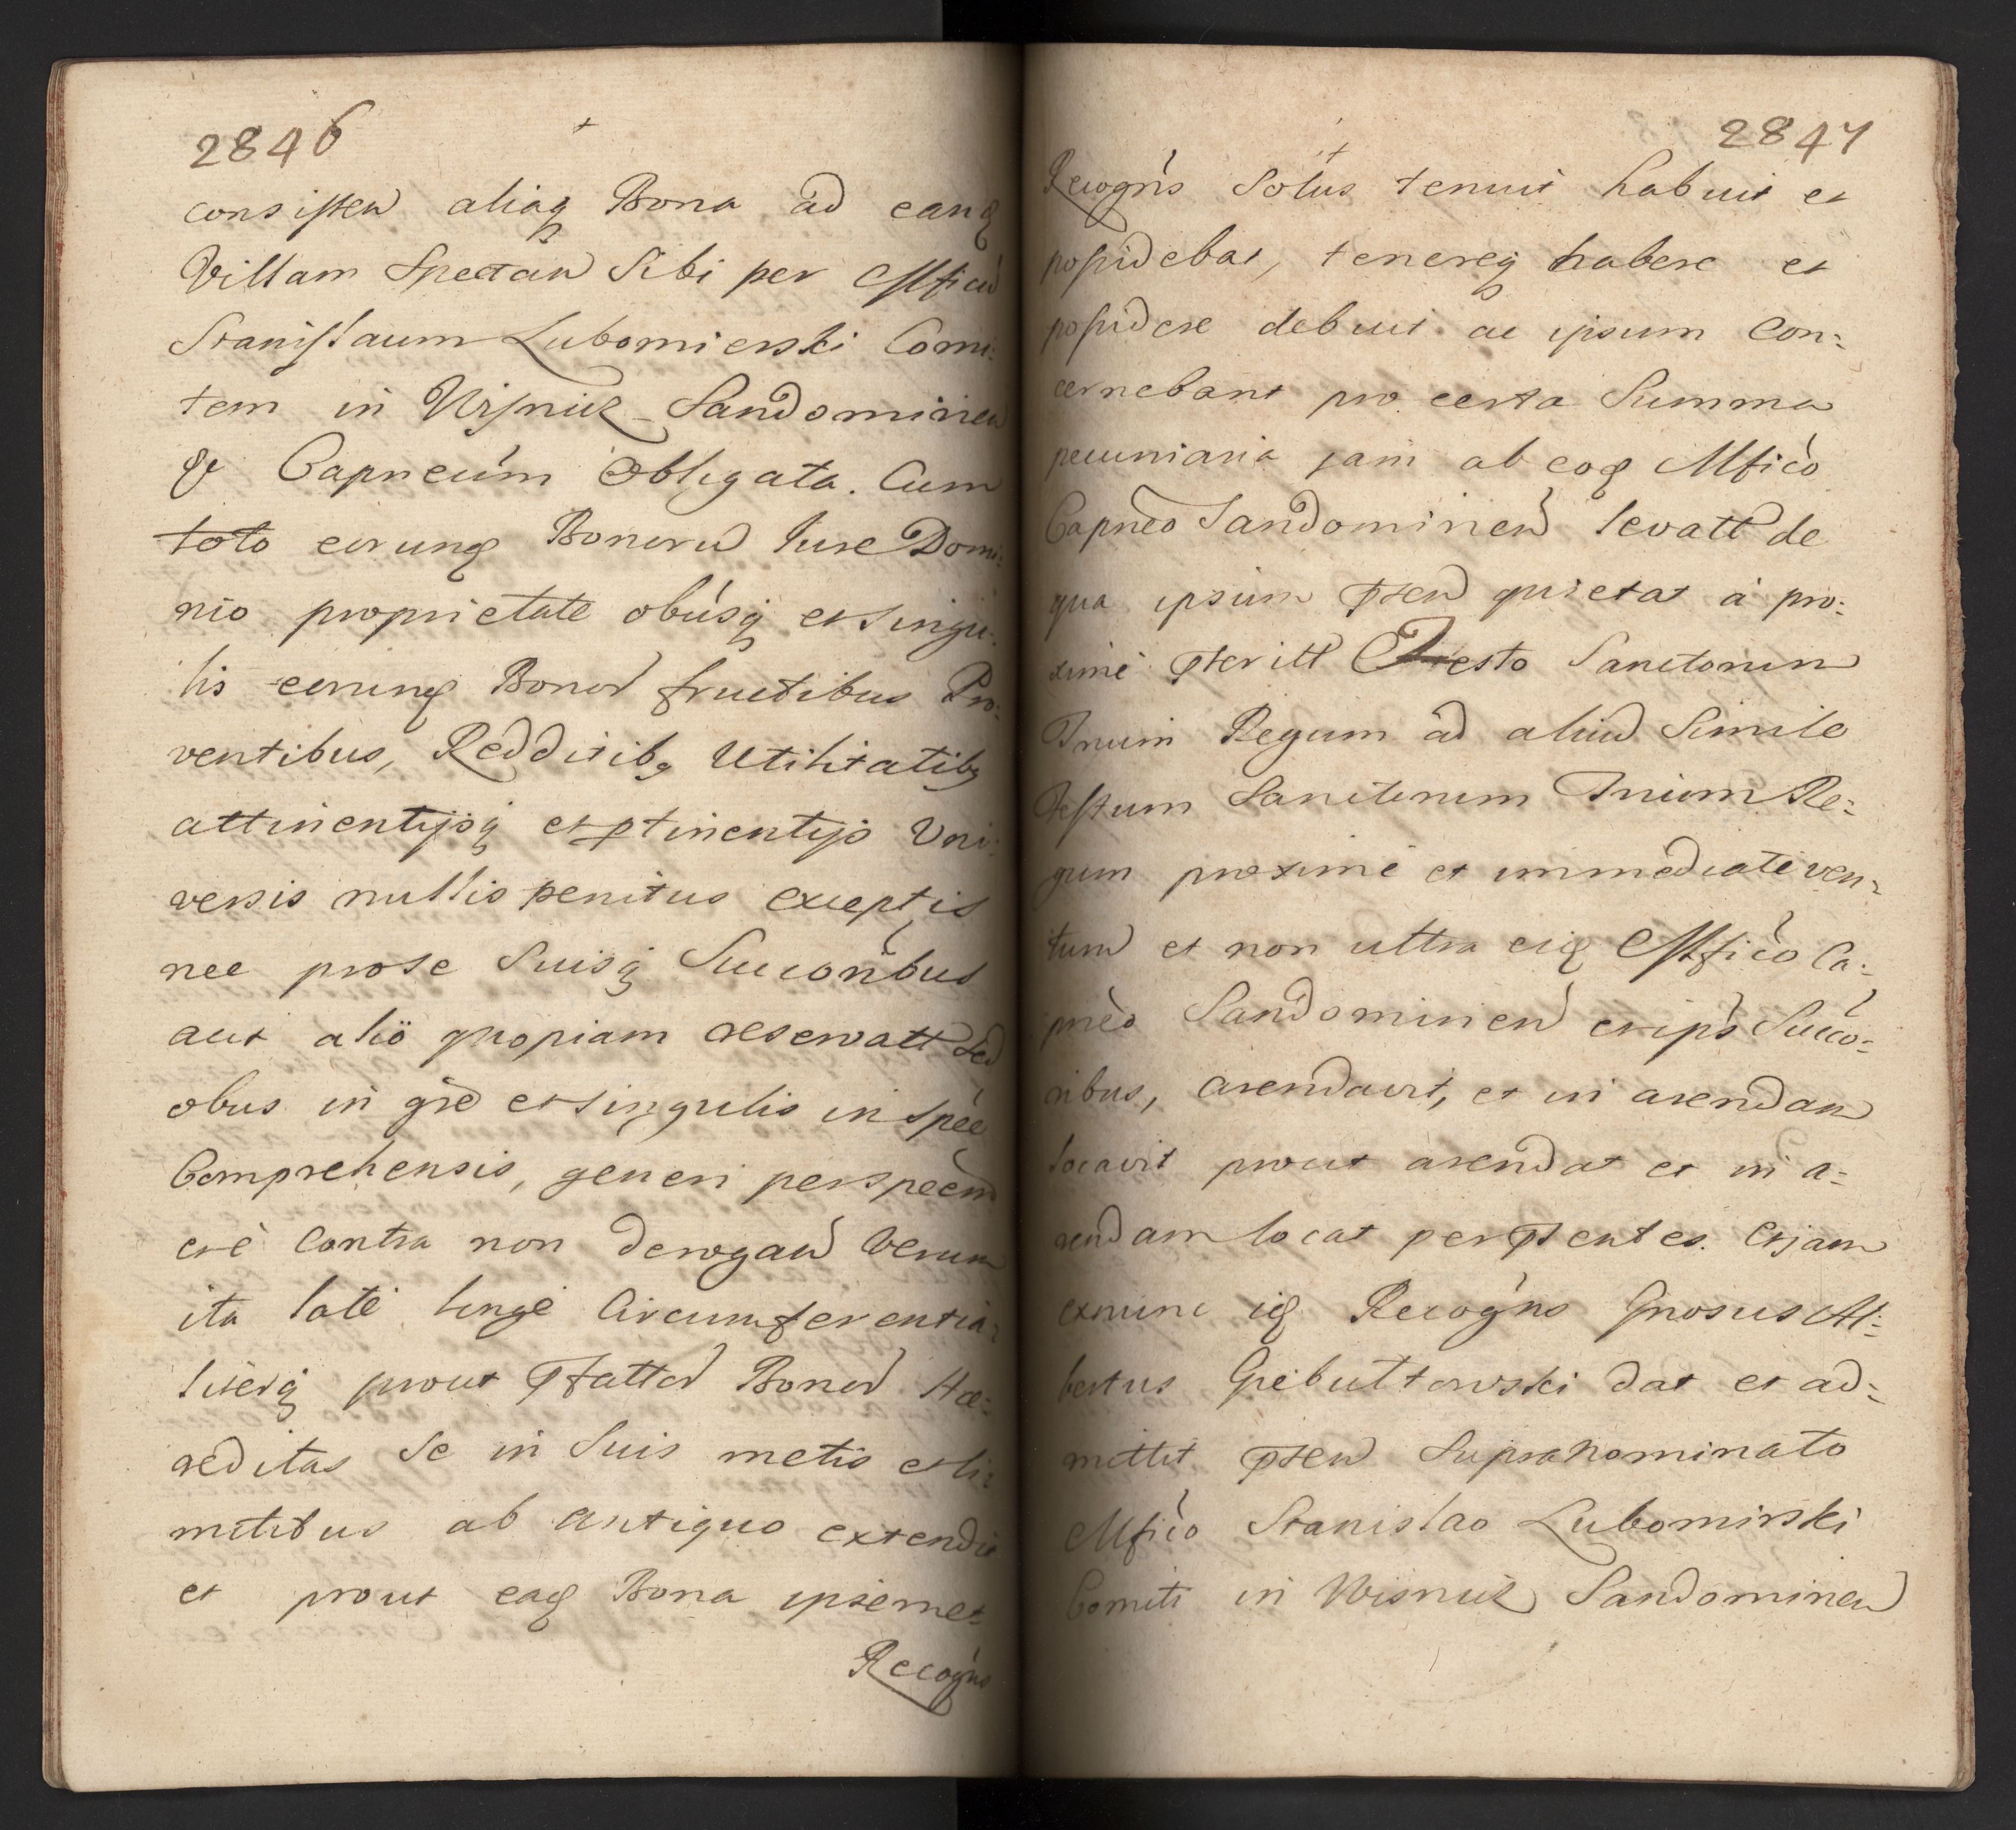 2846
consisten aliaq Bona ad eand
Villam Spectan Sibi per Mficu
Stanislaum Lubomierski Comi:
tem in Wisnicz Sandomirien
& Capneum Obligata. Cum
toto eorund Bonoru Iure Domi:
nio proprietate obusq et singu:
lis eorund Bonor fructibus Pro:
ventibus, Redditibq Utilitatibq
attinentijsq et ptinentijs Uni:
versis nullis penitus exceptis
nec pro se Suisq Succoribus
aut alio quopiam reservatt sed
obus in gre et singulis in spee
Comprehensis, generi per specim
et è contra non derogan Verum
ita late longe Circumferentia:
literq prout Pfattor Bonor Hæ:
reditas Se in Suis metis et li:
mitibus ab antiquo extendit
et prout ead Bona ipsemet
Recogns
2847
Recogns Solus tenuit habuit et
possidebat, tenereq habere et
possidere debuit ac ipsum Con:
cernebant pro certa Summa
pecuniaria jam ab eod Mfico
Capneo Sandomirien levatt de
qua ipsum pten quietat à pro:
xime pteritt Festo Sanctorum
Trium Regum ad aliud Simile
Festum Sanctorum Trium Re:
gum proxime et immediate ven:
tum et non ultra eid Mfico Ca:
pneo Sandomirien eiusps Succo:
ribus, arendavit, et in arendam
locavit prout arendat et in a:
rendam locat per ptentes. Et jam
exnunc id Recogns Gnosus Al:
bertus Giebultowski dat et ad:
mittit pten Supra Nominato
Mfico Stanislao Lubomirski
Comiti in Wisnicz Sandomirien